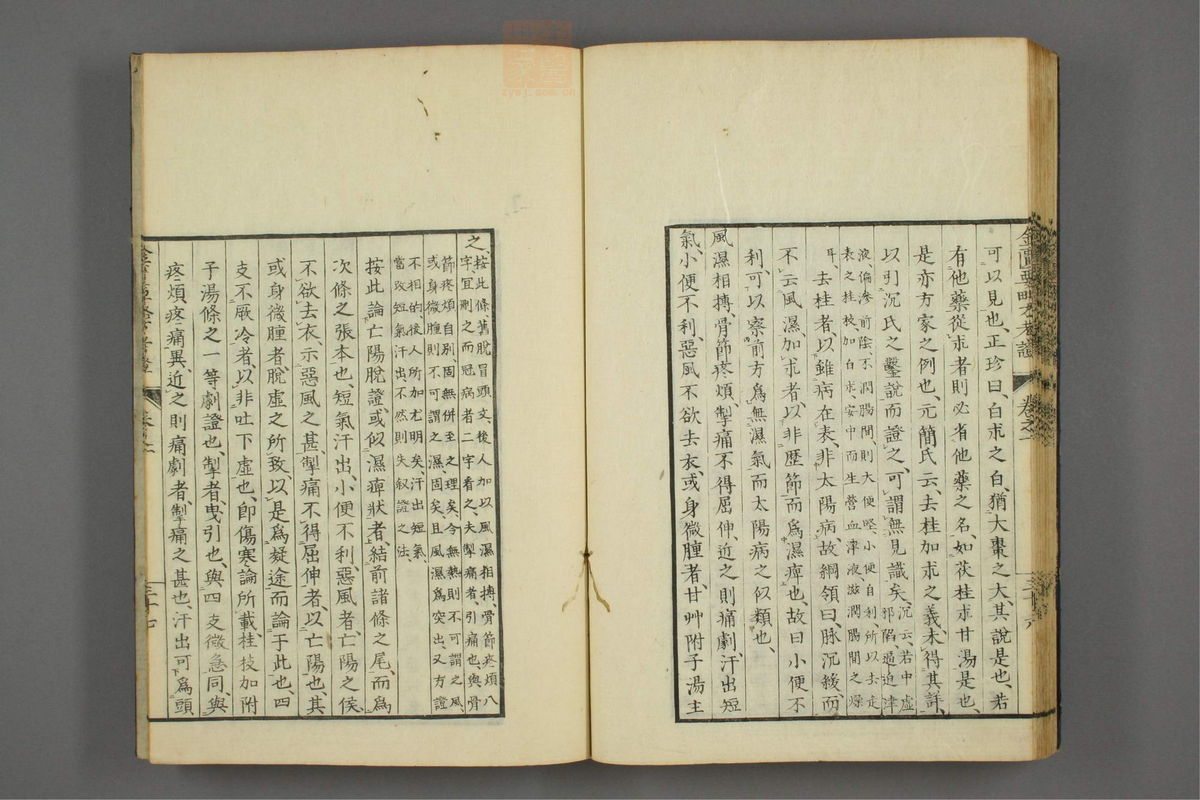 可以見也、正珍曰、白朮之白、猶大棗之大、其說是也、若
有他藥從朮者、則必省他藥之名、如茯桂朮甘湯是也、
是亦方家之例也、元簡氏云、去桂加朮之義、未得其詳、
以引沉氏之鑿說而證之、可謂無見識矣、沉云、若中虛邪陷、逼迫津
液偏滲前陰、不潤腸間、則大便堅、小便自利、所以去走
表之桂枝、加白朮、安中而生營血津液、滋潤腸間之燥
耳、去桂者、以雖病在表、非太陽病故、綱領曰、脉沉緩而
不云風濕、加朮者、以非歷節而為濕痺也、故曰小便不
利、可以察前方為無濕氣而太陽病之似類也、
風濕相摶、骨節疼煩、掣痛不得屈伸、近之則痛劇、汗出短
氣、小便不利、惡風不欲去衣、或身微腫者、甘艸附子湯主
金匱要略方考證
卷之一
三十六
之、按此條舊脫冒頭文、後人加以風濕相摶、骨節疼煩八
字、宜刪之而冠病者二字看之、夫掣痛者、引痛也、與骨
節疼煩自別、固無併至之理矣、今無熱則不可謂之風、
或身微腫則不可謂之濕、固矣、且風濕為突出、又方證
不相的、後人所加尤明矣、汗出短氣、
當改短氣汗出、不然則失叙證之法、
按此論亡陽脫證、或似濕痺狀者、結前諸條之尾、而為
次條之張本也、短氣汗出、小便不利、惡風者、亡陽之候、
不欲去衣、示惡風之甚、掣痛不得屈伸者、以亡陽也、其
或身微腫者、脫虛之所致、以是為疑途而論于此也、四
支不厥冷者、以非吐下虛也、即傷寒論所載、桂枝加附
子湯條之一等劇證也、掣者、曳引也、與四支微急同、與
疼煩、疼痛異、近之則痛劇者、掣痛之甚也、汗出可為頭
三十七